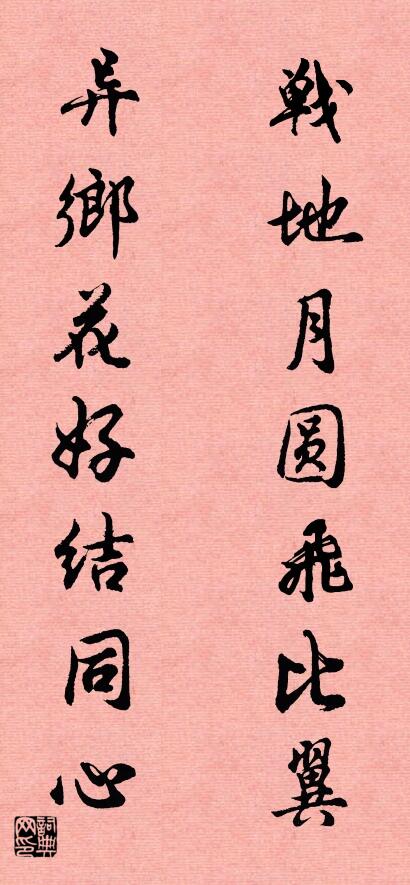 戦地月圆飛比翼
异鄉花好结同心
詞典网印